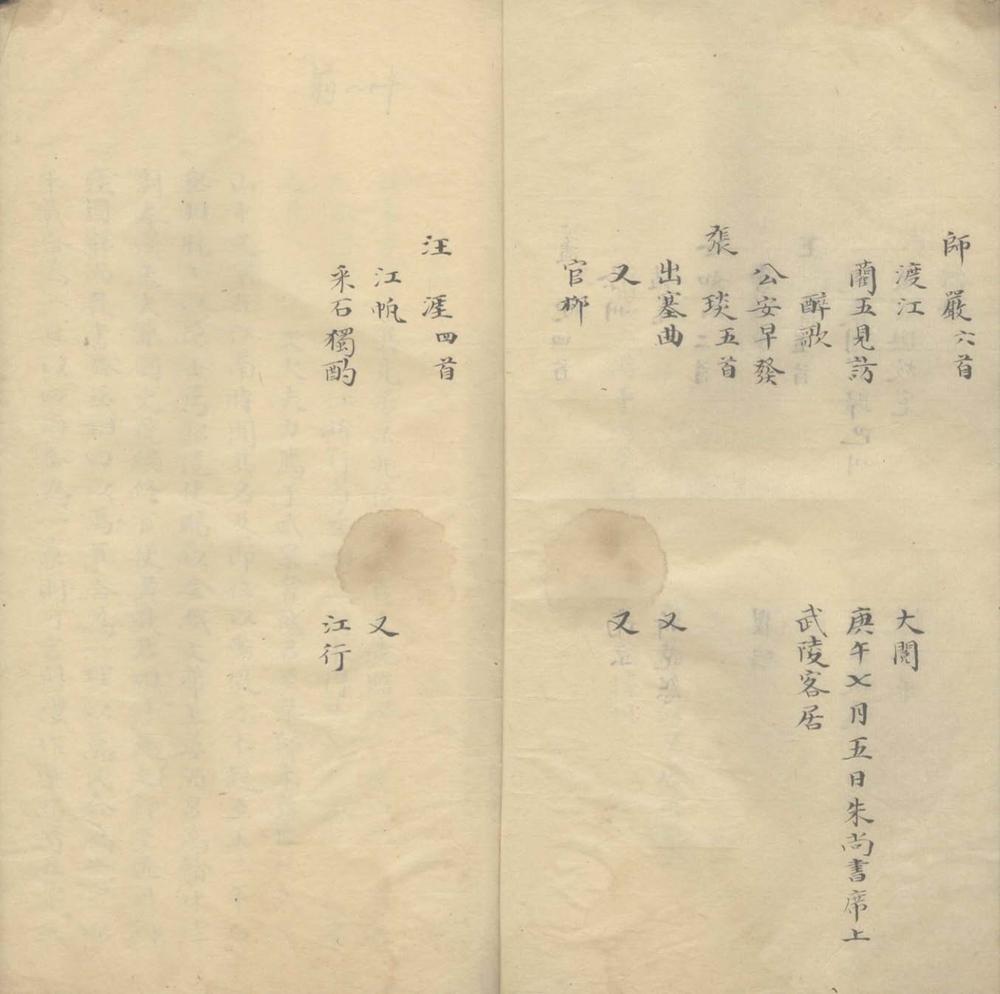 師嚴六首
渡江 大閱
藺五見訪 庚午七月五日朱尚書席上
醉歌 武陵客居
公安早發
張琰五首
出塞曲 又
又 又
官柳
汪涯四首
江帆 又
采石獨酌 江行